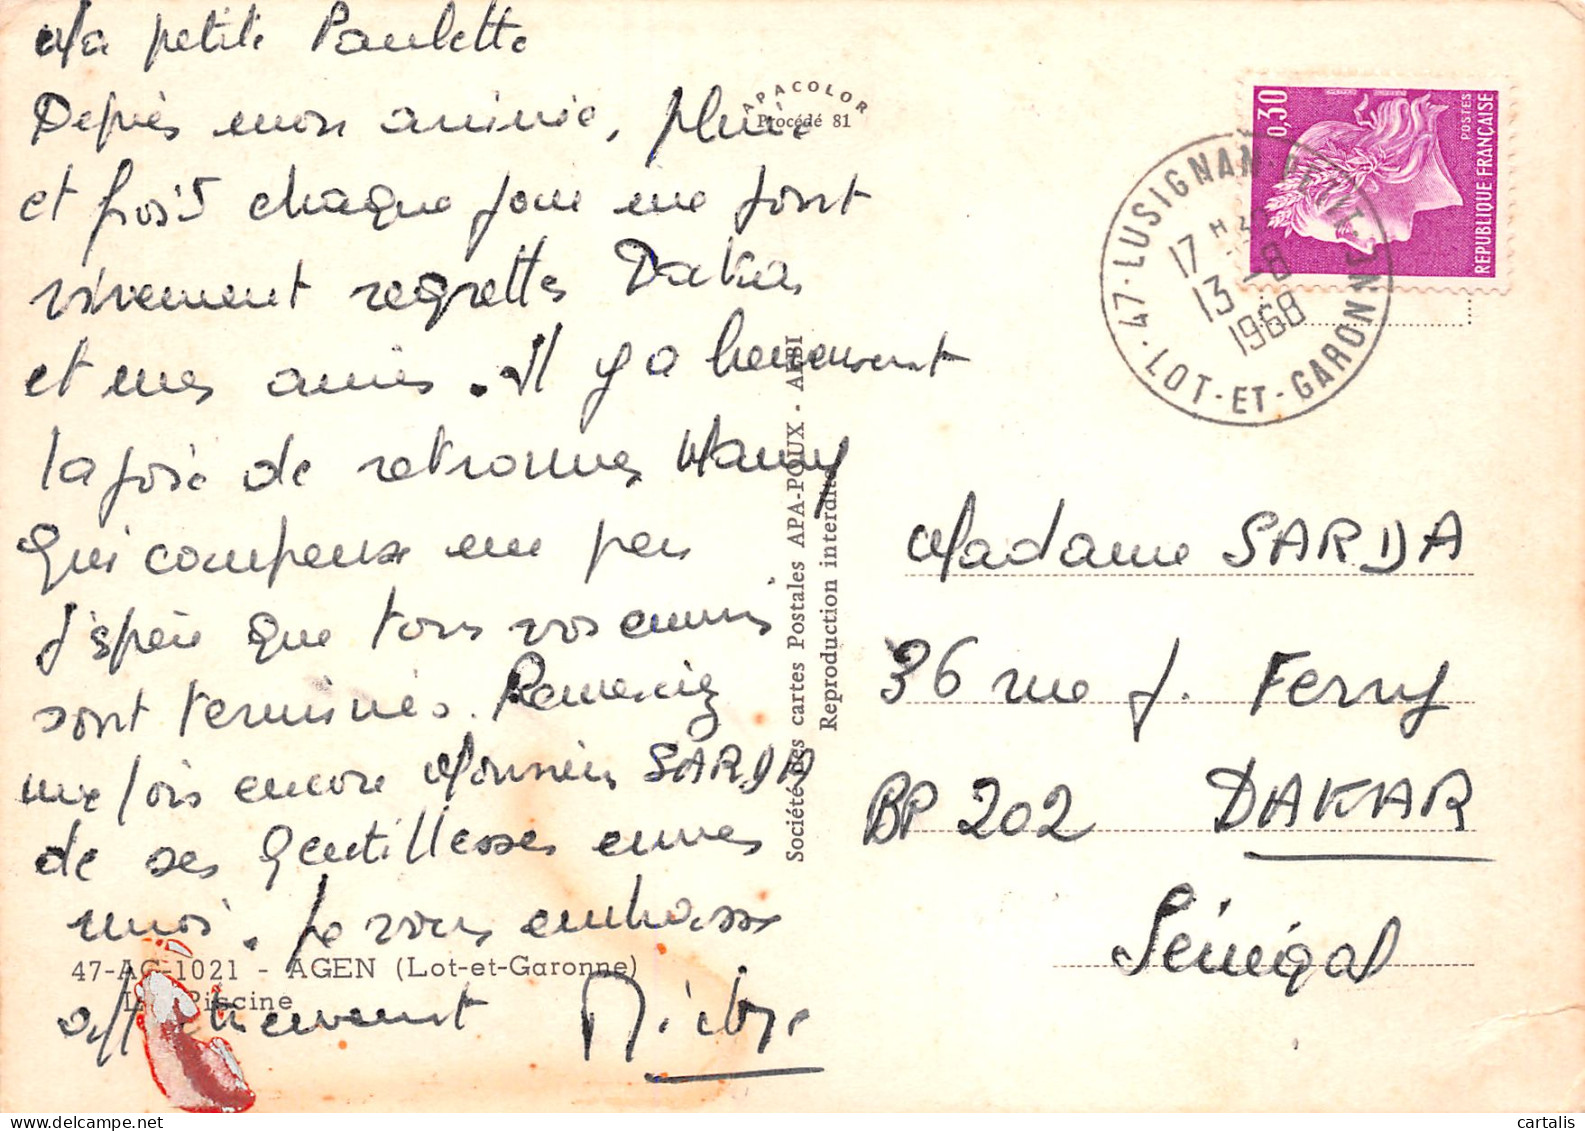 Ma petite Paulette
Depuis mon arrivée, pluie
et froid chaque jour me font
vivement regretter Dakar
et mes amis. Il y a heureusement
la joie de retrouver Mamy
qui compense un peu
J'espère que tous vos ennuis
sont terminés. Remerciez
une fois encore Monsieur SARDA
de ses gentillesses envers
moi. Je vous embrasse
affectueusement
47-AG-1021 - AGEN (Lot-et-Garonne)
La Piscine
APACOLOR
Procédé 81
Société des cartes Postales APA-POUX - ALBI
Reproduction interdite
0,30
POSTES
REPUBLIQUE FRANÇAISE
47 - LUSIGNAN-PETIT
LOT-ET-GARONNE
17 H
13 - 8
1968
Madame SARDA
36 rue J. Ferry
BP 202 DAKAR
Sénégal
cartalis